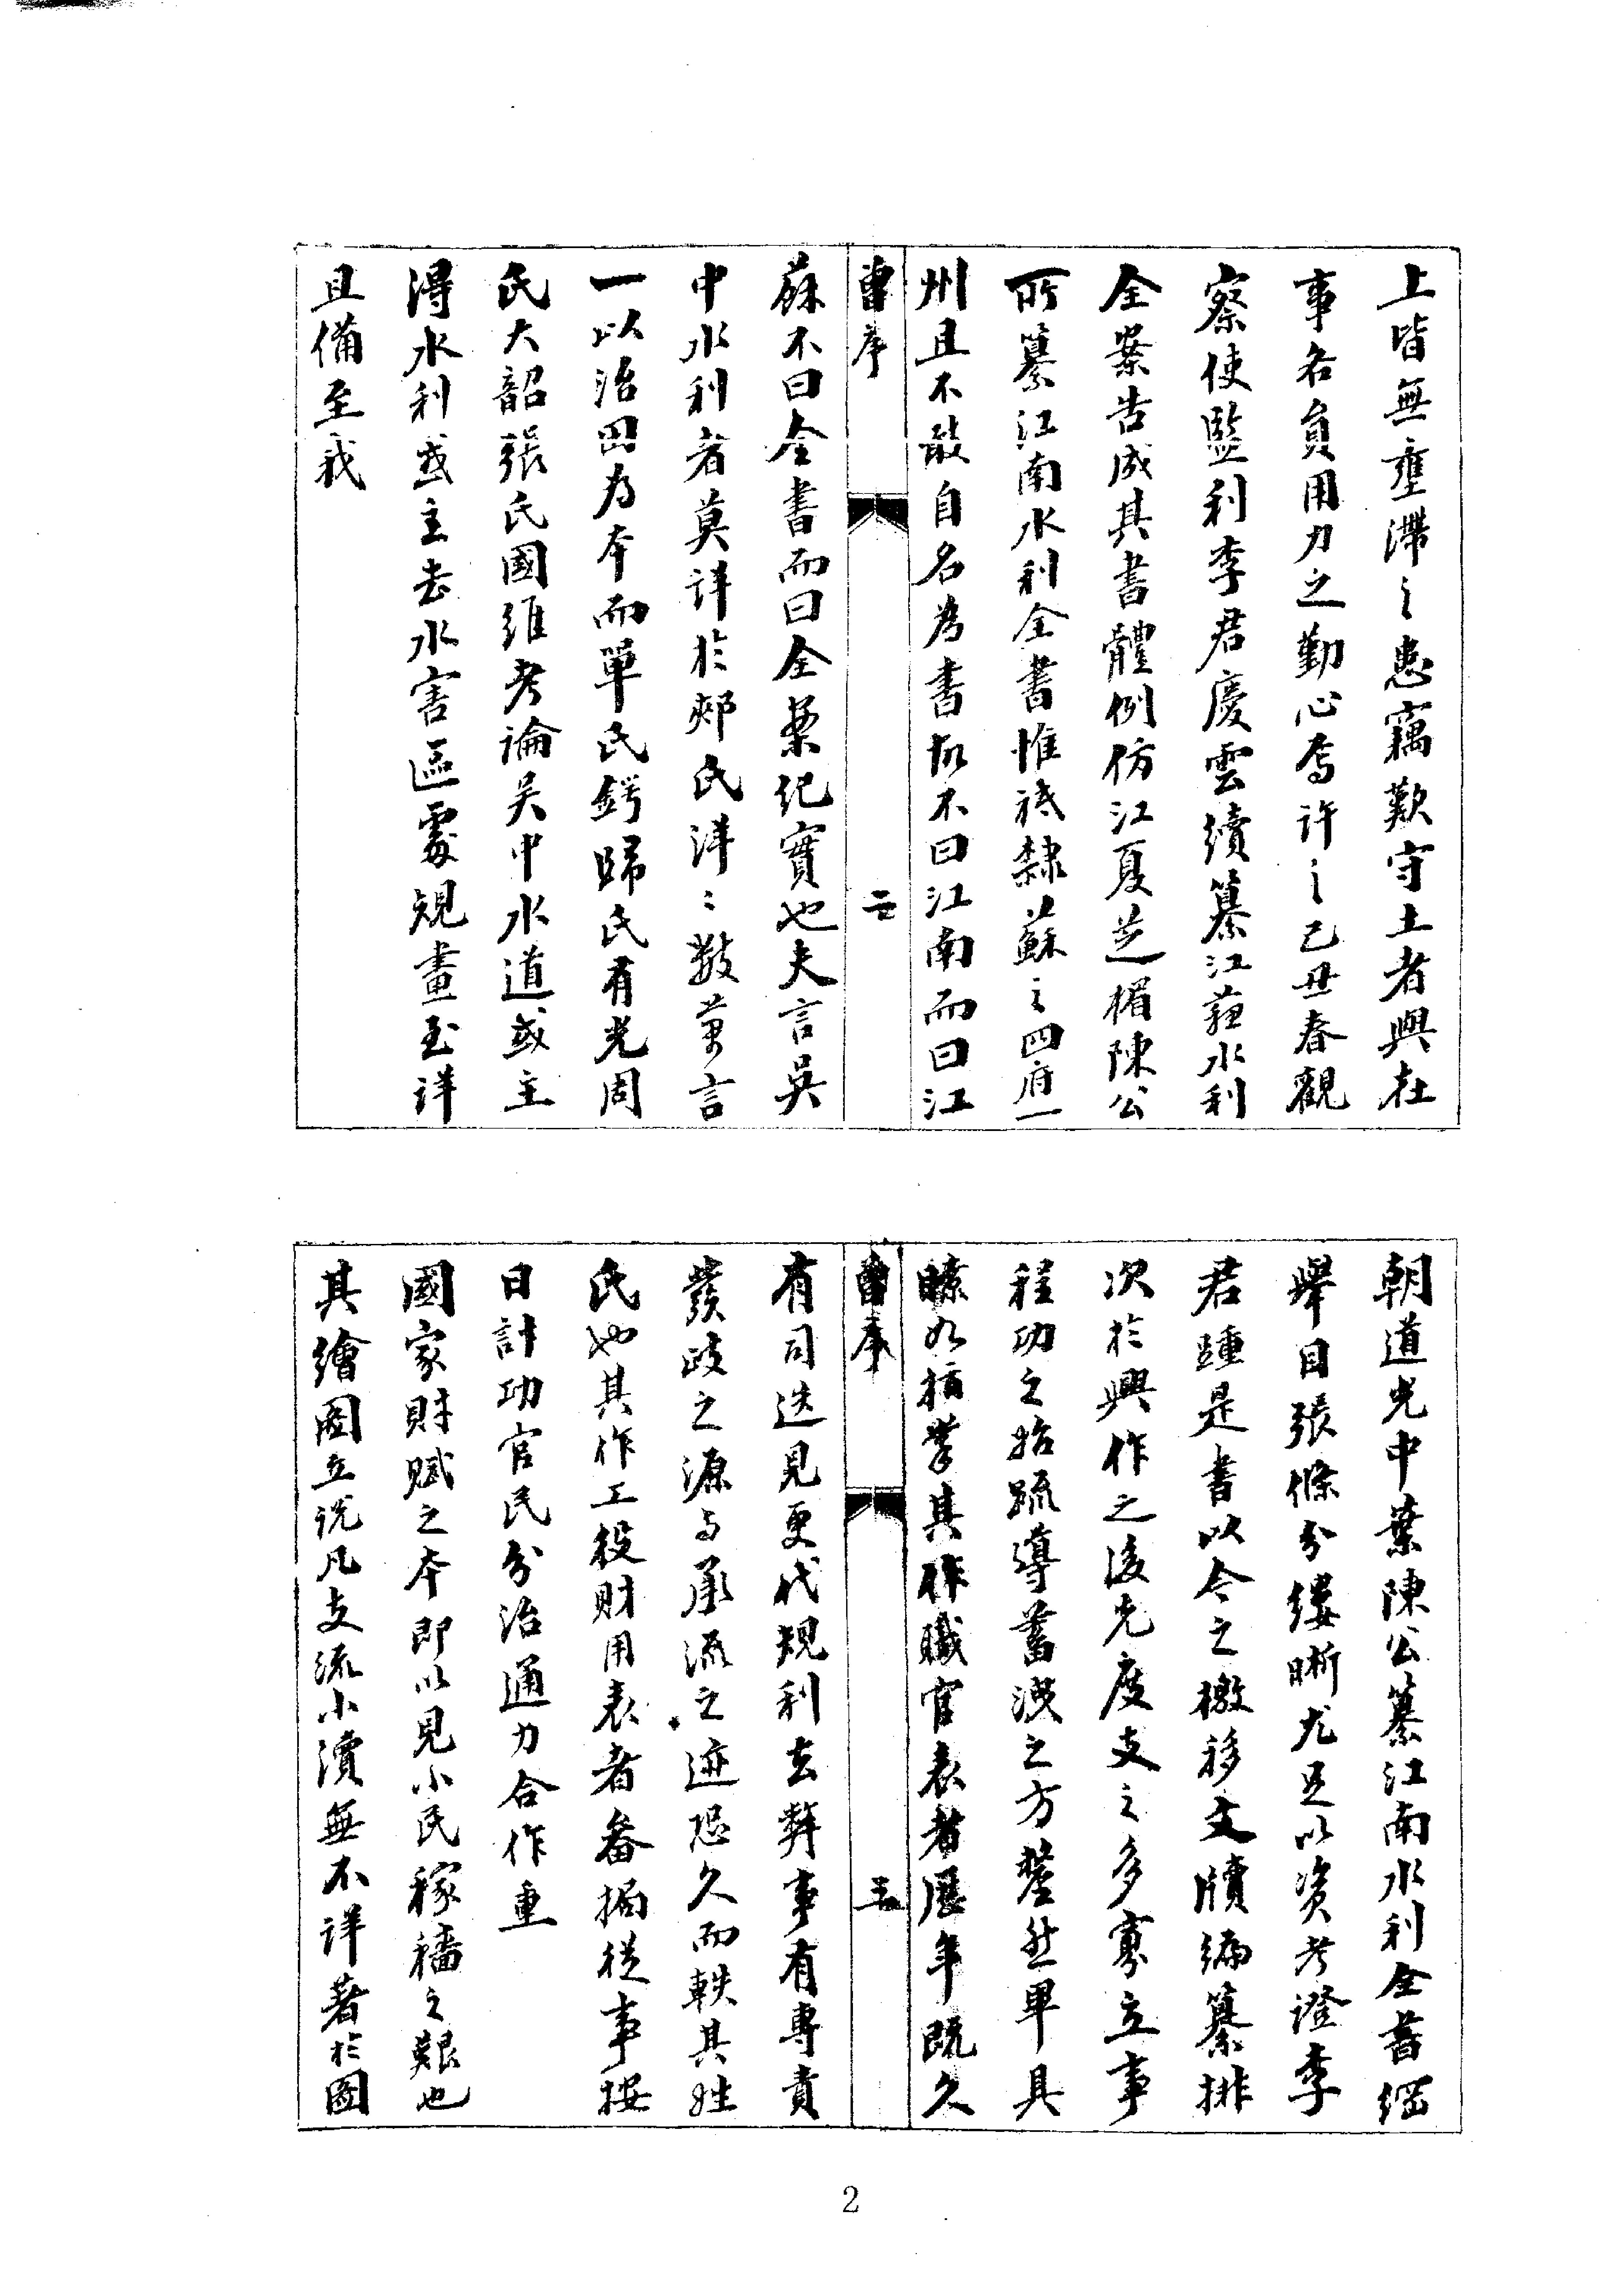 上皆無壅滯之患竊歎守土者與在
事各員用力之勤心焉許之己丑春觀
察使監利李君慶雲續纂江蘇水利
全案告成其書體例仿江夏芝楣陳公
所纂江南水利全書惟祗隸蘇之四府一
州且不敢自名為書故不曰江南而曰江
曹序
二
蘇不曰全書而曰全案紀實也夫言吳
中水利者莫詳於郟氏洋洋數萬言
一以治田為本而單氏鍔歸氏有光周
氏大韶張氏國維考論吳中水道或主
得水利或主去水害區處規畫至詳
且備至我
朝道光中葉陳公纂江南水利全書綱
舉目張條分縷晰尤足以資考證李
君踵是書以今之檄移文牘編纂排
次於興作之後先度支之多寡立事
程功之始疏導蓄洩之方釐然畢具
瞭如指掌其作職官表者歷年既久
曹序
三
有司迭見更代規利去弊事有專責
發歧之源與承流之迹恐久而軼其姓
氏也其作工役財用表者畚挶從事按
日計功官民分治通力合作重
國家財賦之本即以見小民稼穡之艱也
其繪圖立說凡支流小瀆無不詳著於圖
2